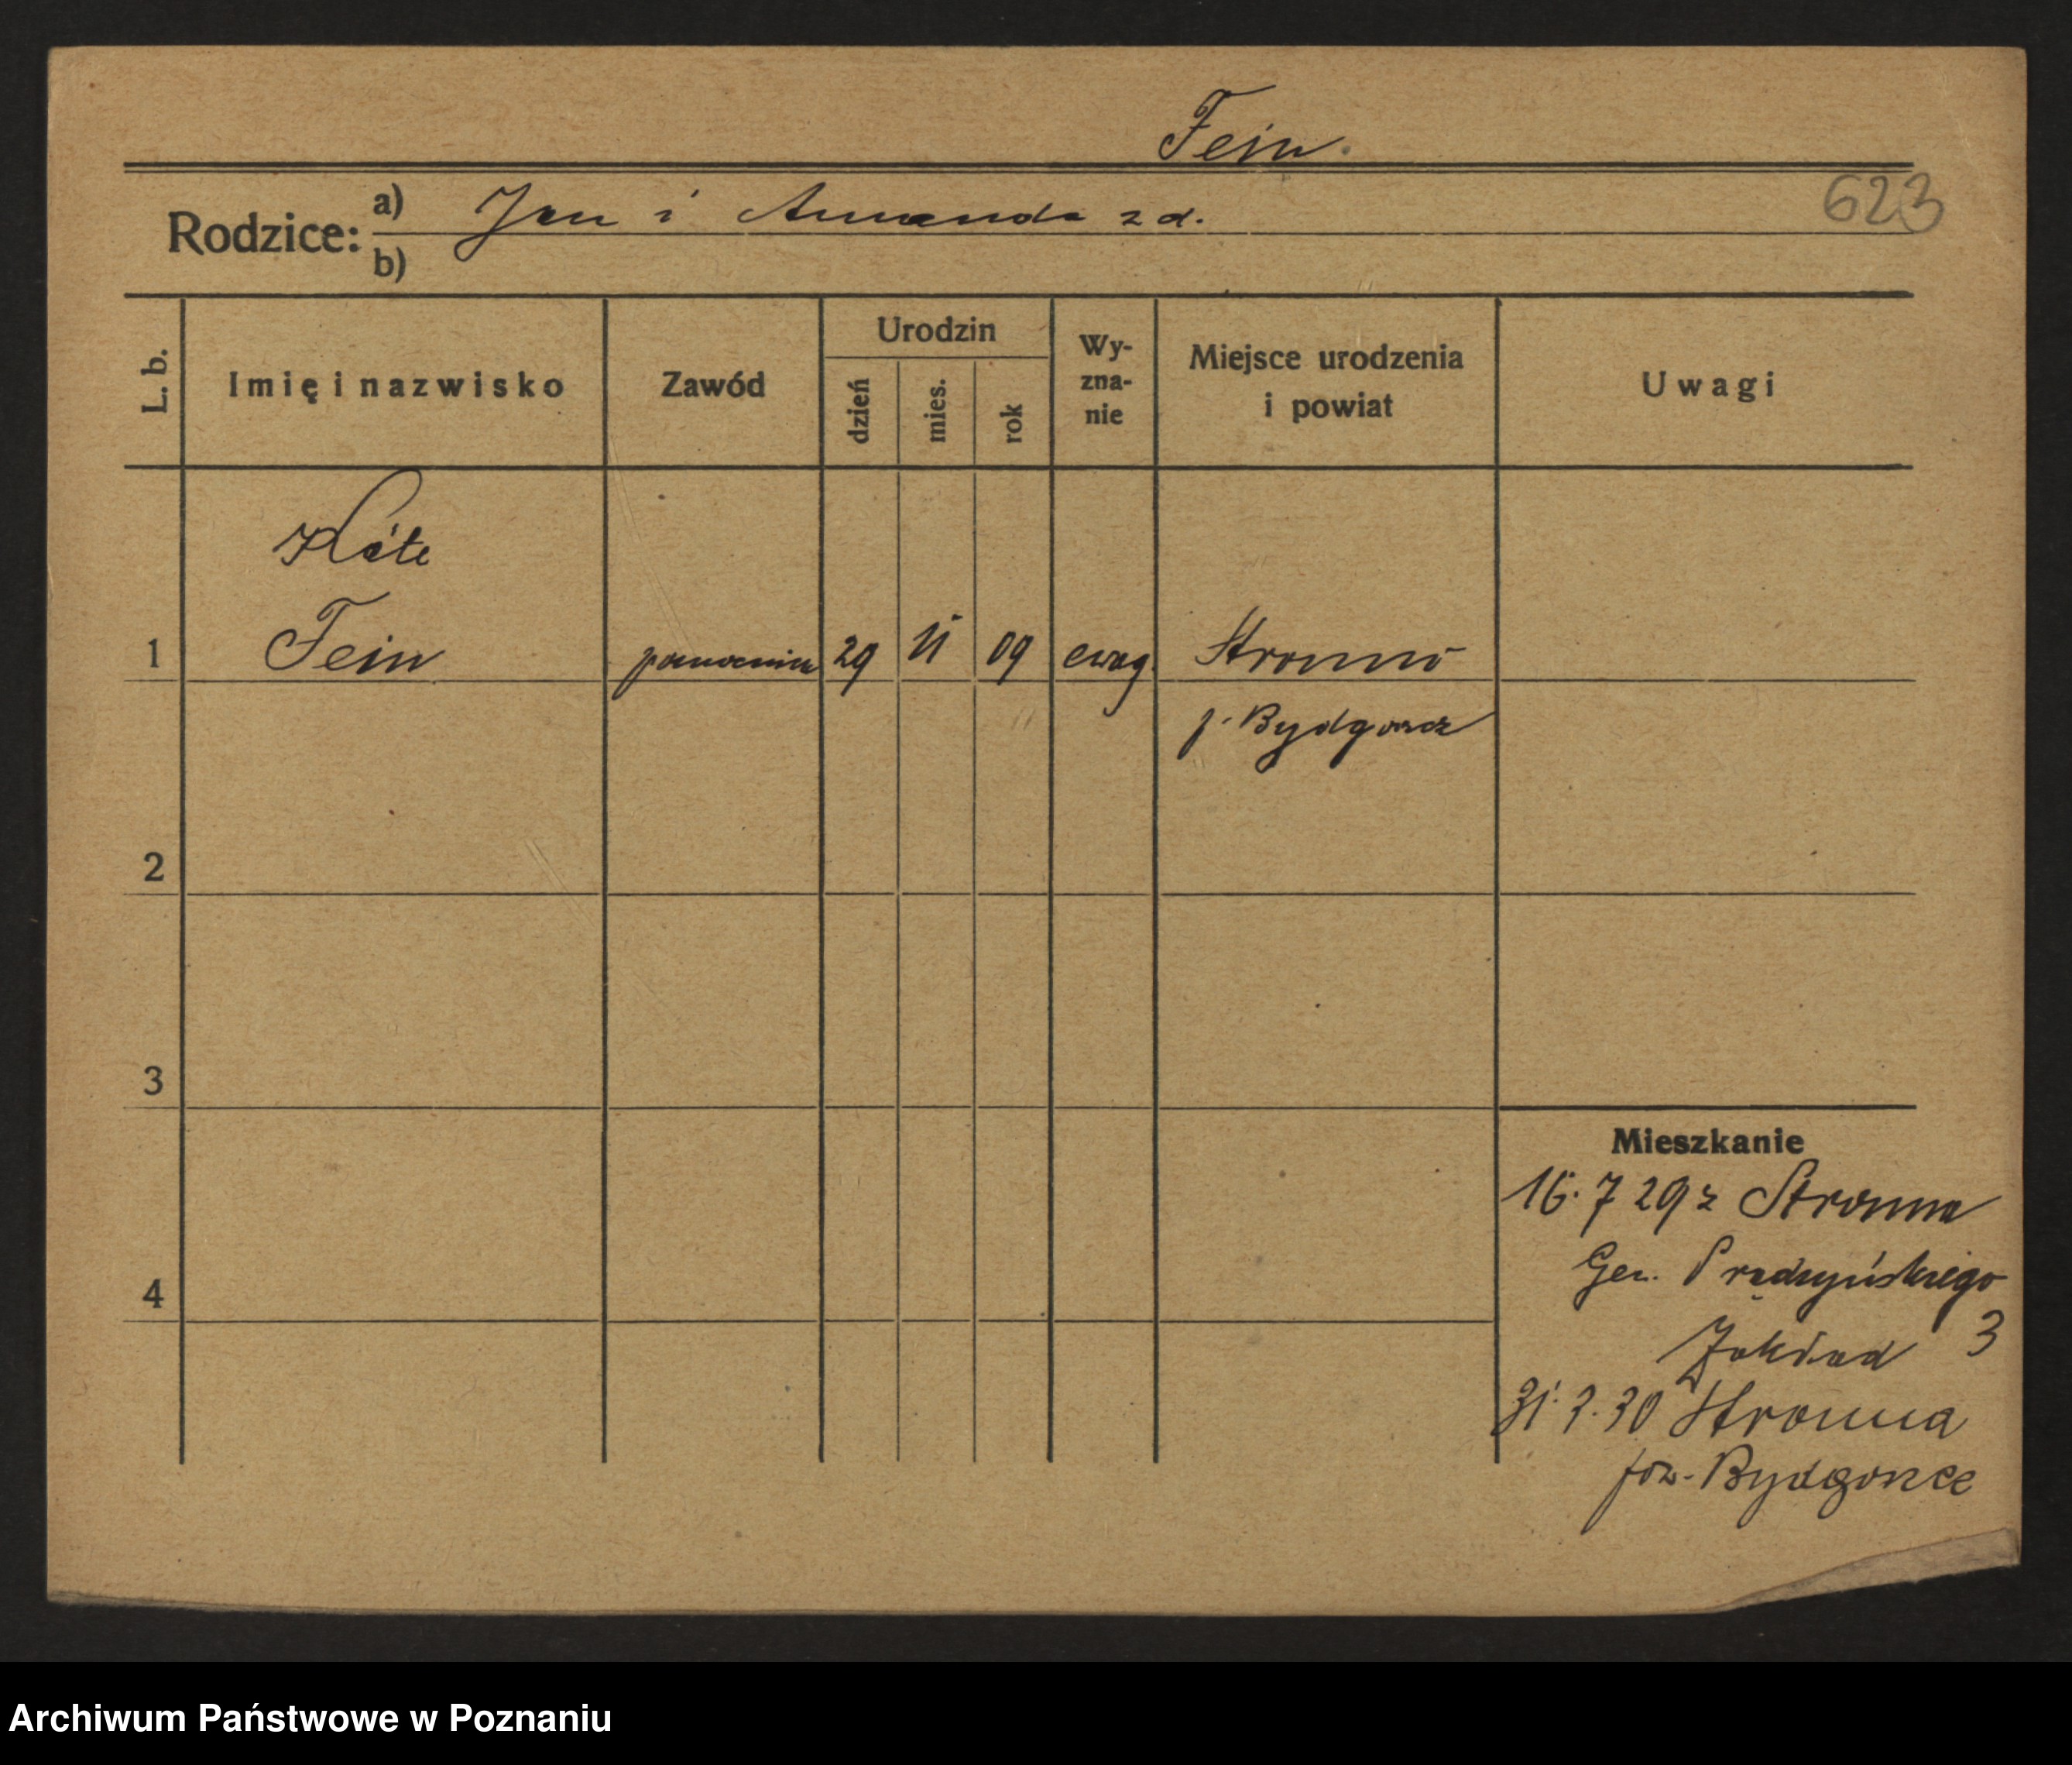 Fein.
623
Rodzice: a) Jan i Amanda z d.
b)
L. b.
Imię i nazwisko
Zawód
Urodzin
dzień
mies.
rok
Wy-
zna-
nie
Miejsce urodzenia
i powiat
Uwagi
Käte
1 Fein pomocnica 29 11 09 ewag. Stronno
p. Bydgoszcz
2
3
Mieszkanie
16. 7 29 z Stronna
Gen. Prądzyńskiego
4
Zakład 3
31. 3. 30 Stronna
pow. Bydgoszcz
Archiwum Państwowe w Poznaniu